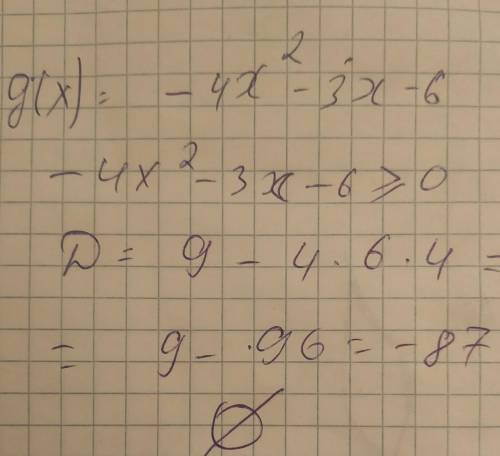 g(x) = -4x² - 3x - 6
-4x² - 3x - 6 ⩾ 0
D = 9 - 4 · 6 · 4 =
= 9 - · 96 = -87
∅